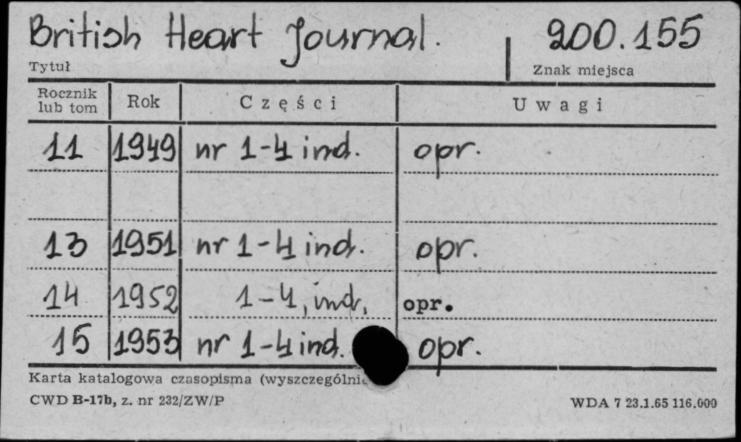 British Heart Journal. 200.155
Tytuł Znak miejsca
Rocznik lub tom Rok Części Uwagi
11 1949 nr 1-4 ind. opr.
13 1951 nr 1-4 ind. opr.
14 1952 1-4, ind, opr.
15 1953 nr 1-4 ind. opr.
Karta katalogowa czasopisma (wyszczególni
CWD B-17b, z. nr 232/ZW/P WDA 7 23.1.65 116.000